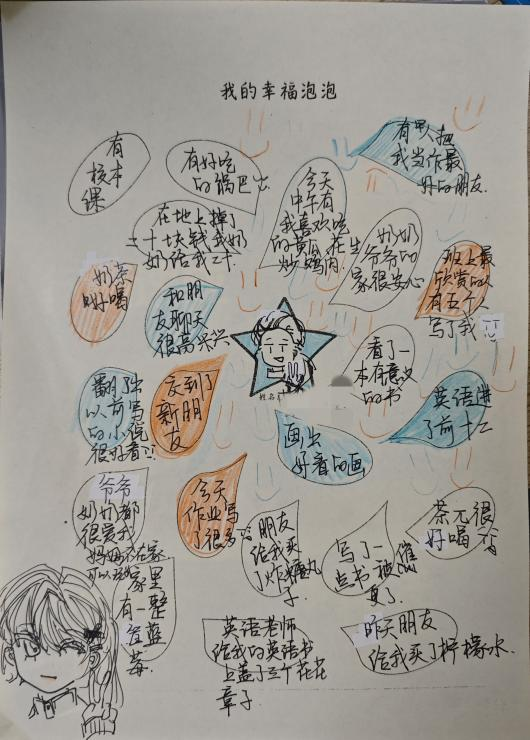 我的幸福泡泡
有
校本
课
有好吃
的锅巴
今天
中午有
我喜欢吃
的黄瓜花生
炒鸡肉
有男人把
我当作最
好的朋友
在地上掉了
二十块钱我奶
奶给我二十
奶奶
爷爷的
家很安心
班上最
欣赏的人
有五个人
写了我
奶茶
好喝
和朋
友聊天
很高兴
看了一
本有意义
的书
翻了
以前写
的小说
很好看
交到了
新朋
友
姓名
画出
好看的画
英语进
了前十二
爷爷
奶奶都
很爱我
妈妈不在家
可以
今天
作业写
了很多
朋友
给我买
了炸
丸
子
写了一
点书被催
更了
茶
很
好喝
家里
有一整
盆蓝
莓
英语老师
给我的英语书
上盖了三个花花
章子
昨天朋友
给我买了柠檬水